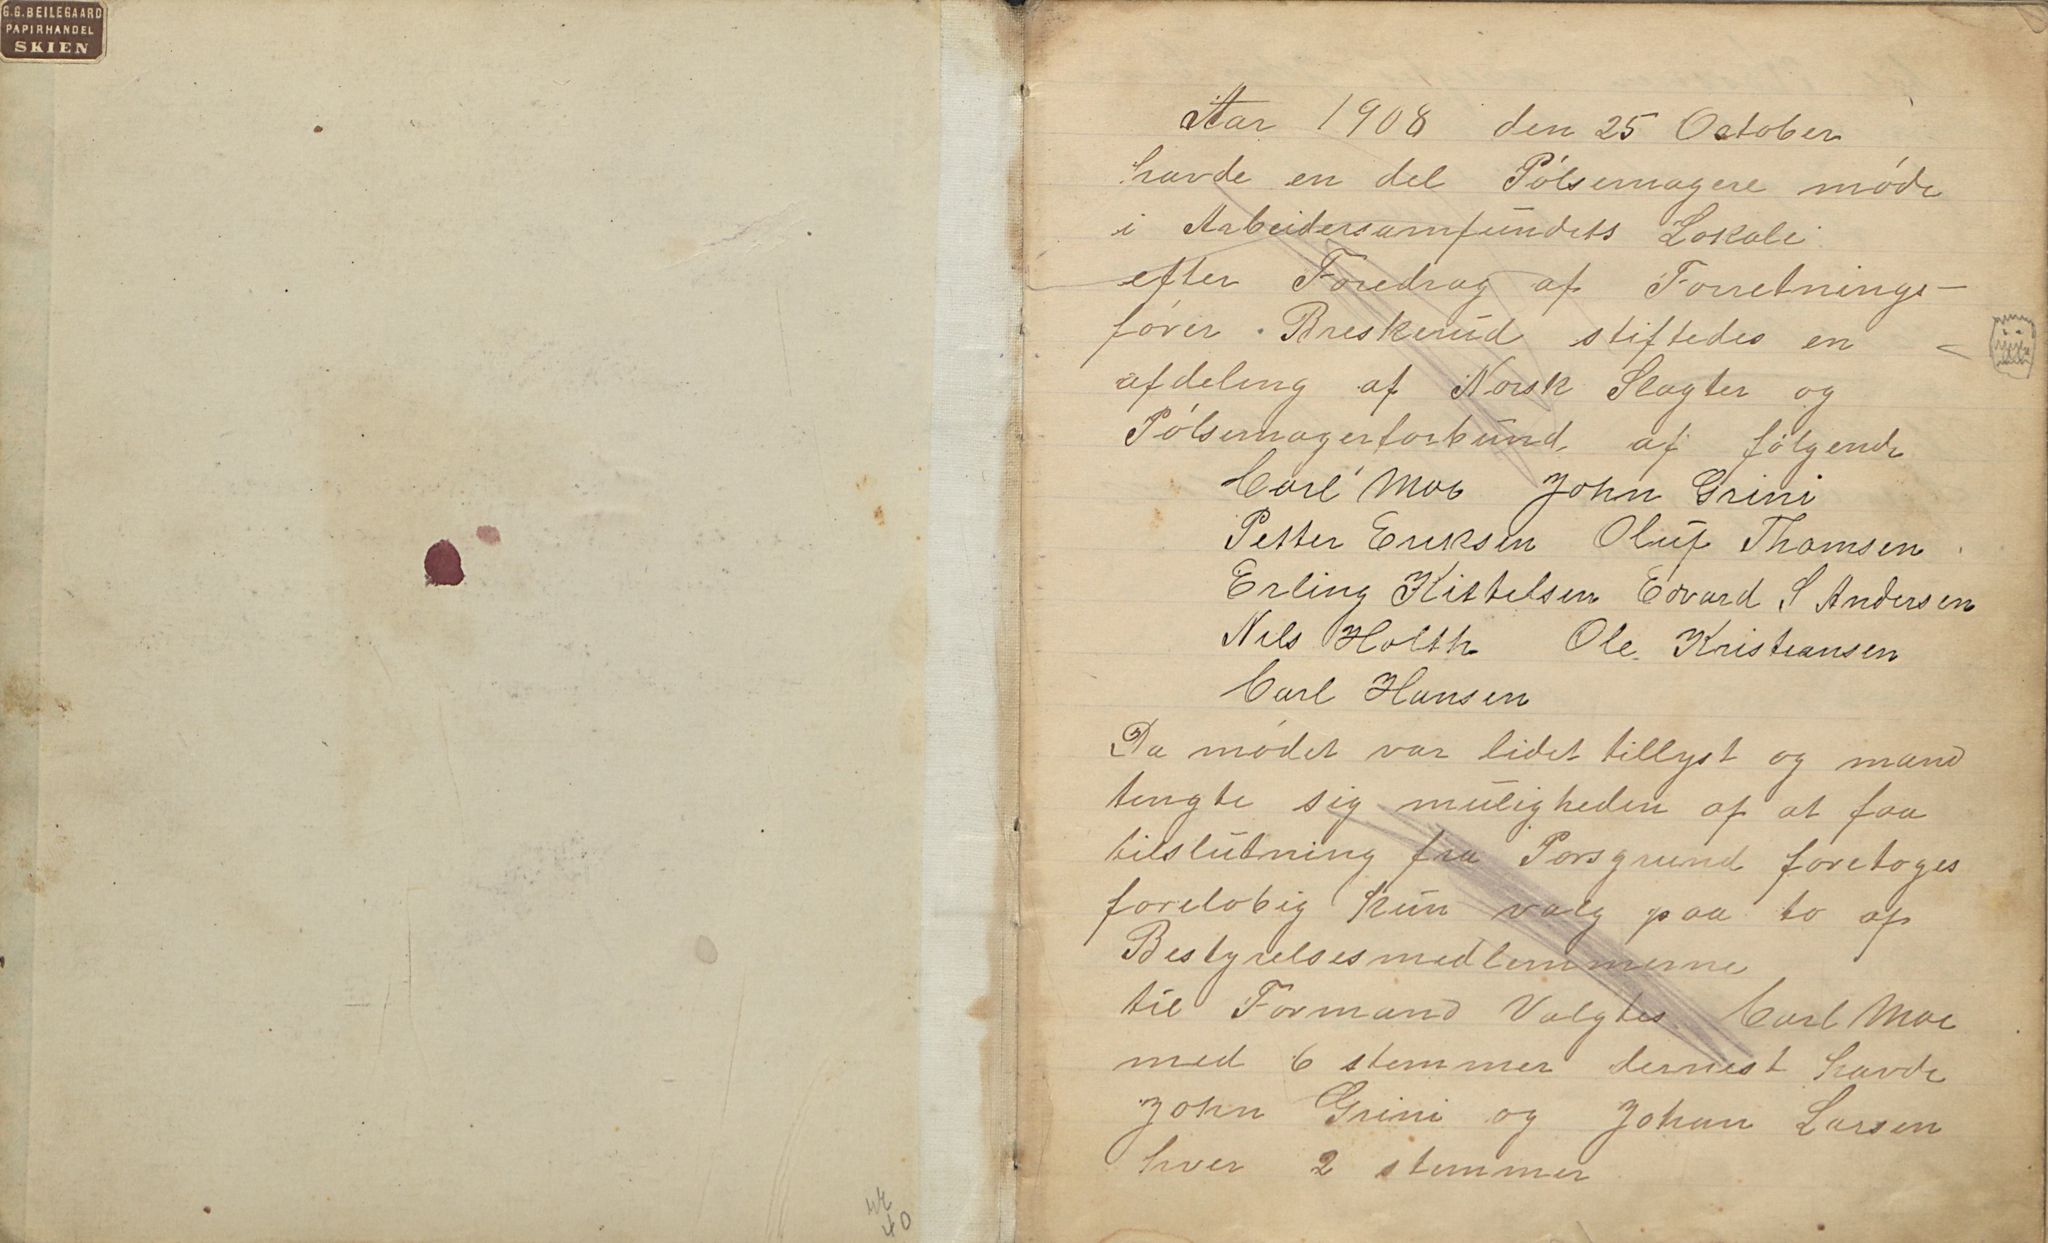 G.G. BEILEGAARD
PAPIRHANDEL
SKIEN
40
Aar 1908 den 25 October
havde en del Pølsemagere møde
i Arbeidersamfundets Lokale
efter Foredrag af Forretnings-
fører Breskerud stiftedes en
afdeling af Norsk Slagter og
Pølsemagerforbund af følgende
Carl Moe John Grini
Petter Eriksen Oluf Thomsen
Erling Kittelsen Edvard S Andersen
Nils Holth Ole Kristiansen
Carl Hansen
Da mødet var lidet tillyst og mand
tengte sig muligheden af at faa
tilslutning fra Porsgrund foretoges
foreløbig kun valg paa to af
Bestyrelsesmedlemmerne
til Formand Valgtes Carl Moe
med 6 stemmer dernest havde
John Grini og Johan Larsen
hver 2 stemmer